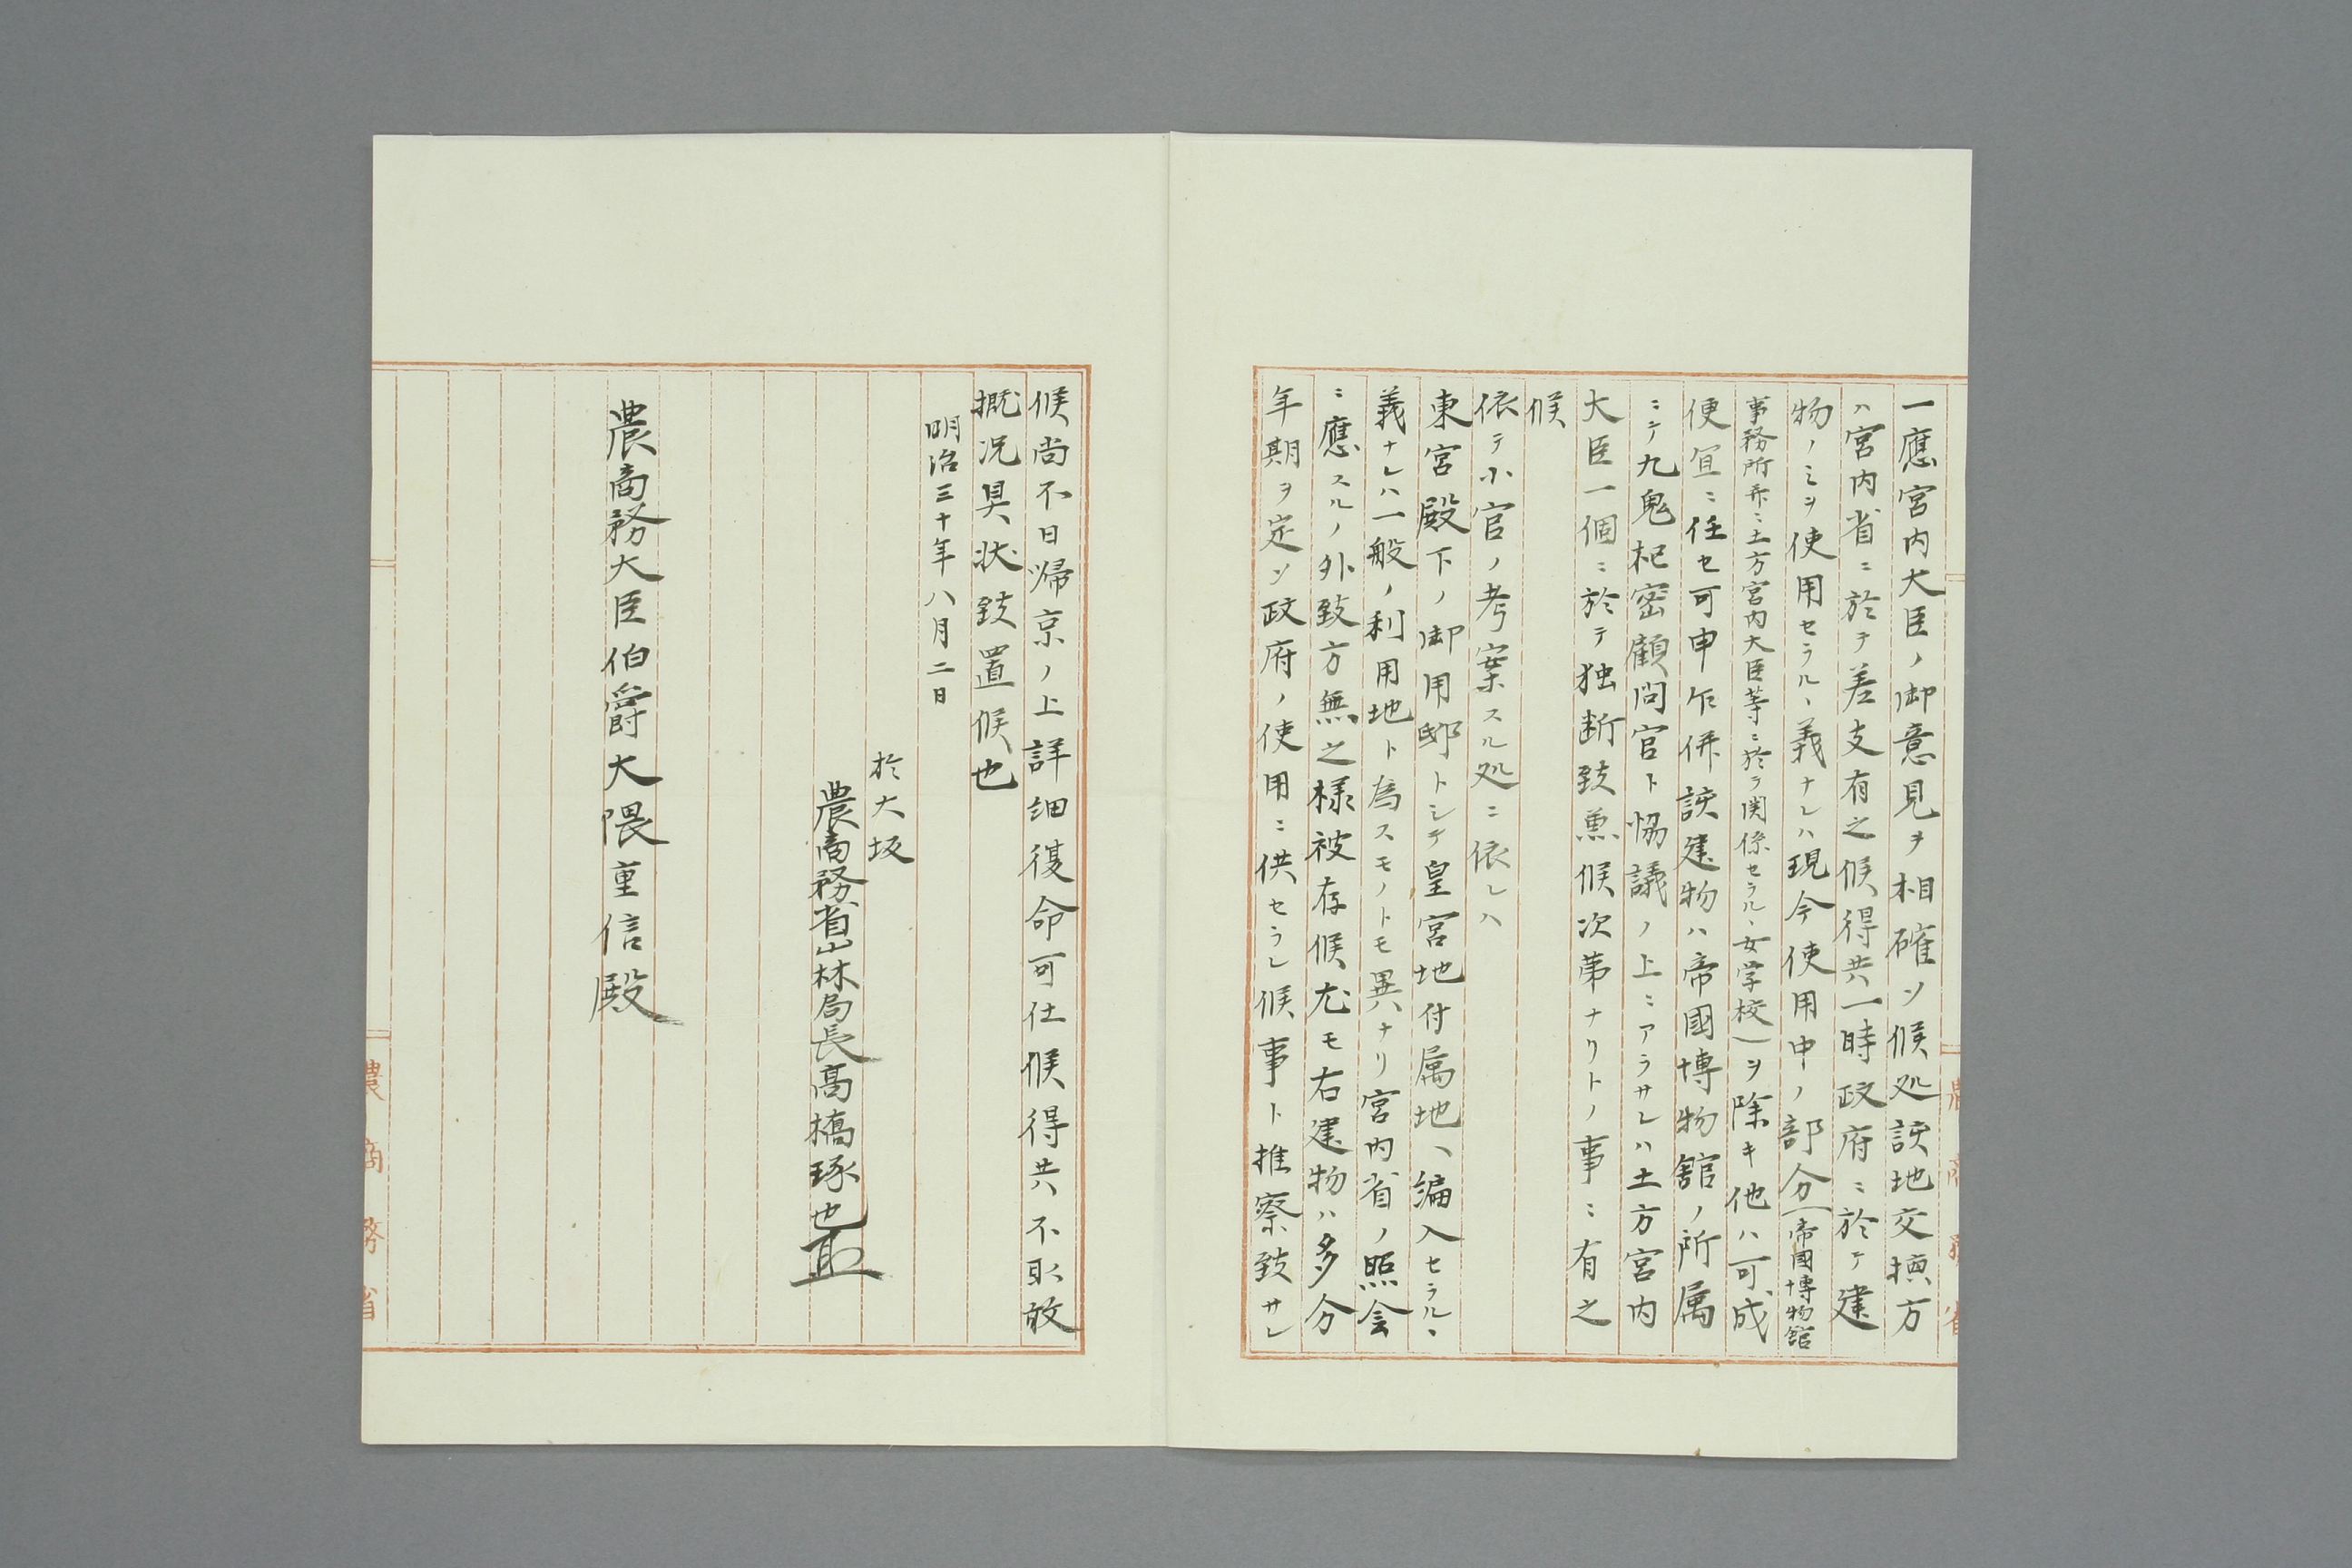 一應宮内大臣ノ御意見ヲ相確シ候処該地交換方
ハ宮内省ニ於テ差支有之候得共一時政府ニ於テ建
物ノミヲ使用セラルヽ義ナレハ現今使用中ノ部分(帝國博物舘
事務所并ニ土方宮内大臣等ニ於テ関係セラルヽ女学校)ヲ除キ他ハ可成
便宜ニ任セ可申乍併該建物ハ帝國博物舘ノ所属
ニテ九鬼枢密顧問官ト協議ノ上ニアラサレハ土方宮内
大臣一個ニ於テ独断致兼候次第ナリトノ事ニ有之
候
依テ小官ノ考案スル処ニ依レハ
東宮殿下ノ御用邸トシテ皇宮地付属地ヘ編入セラルヽ
義ナレハ一般ノ利用地ト為スモノトモ異ナリ宮内省ノ照会
ニ應スルノ外致方無之様被存候尤モ右建物ハ多分
年期ヲ定シ政府ノ使用ニ供セラレ候事ト推察致サレ
候尚不日帰京ノ上詳細復命可仕候得共不取敢
概况具状致置候也
明治三十年八月二日
於大坂
農商務省山林局長高橋琢也
農商務大臣伯爵大隈重信殿
農商務省